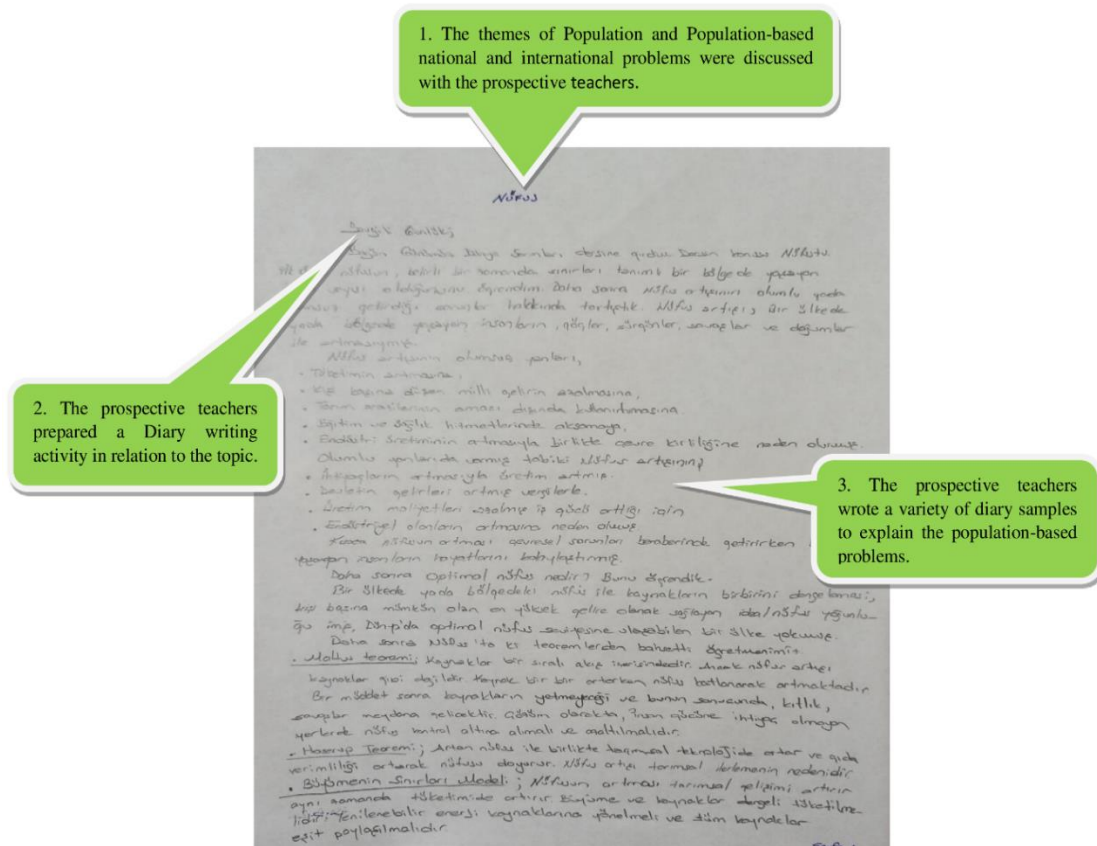 1. The themes of Population and Population-based
national and international problems were discussed
with the prospective teachers.
NÜFUS
Sevgili Günlük;
Bugün Günümüz Dünya Sorunları dersine girdik. Dersin konusu Nüfustu.
nüfusun, belirli bir zamanda sınırları tanımlı bir bölgede yaşayan
sayısı olduğunu öğrendim. Daha sonra Nüfus artışının olumlu yada
getirdiği sonuçlar hakkında tartıştık. Nüfus artışı, Bir ülkede
yada bölgede yaşayan insanların, göçler, sürgünler, savaşlar ve doğumlar
ile artmasıymış.
Nüfus artışının olumsuz yanları,
• Tüketimin artmasına,
• Kişi başına düşen milli gelirin azalmasına,
• Tarım arazilerinin amacı dışında kullanılmasına,
• Eğitim ve sağlık hizmetlerinde aksamaya,
• Endüstri üretiminin artmasıyla birlikte çevre kirliliğine neden olurmuş.
Olumlu yanlarıda varmış tabiki Nüfus artışının;
• İhtiyaçların artmasıyla üretim artmış.
• Devletin gelirleri artmış vergilerle.
• Üretim maliyetleri azalmış iş gücü arttığı için
• Endüstriyel alanların artmasına neden olmuş
nüfusun artması çevresel sorunları beraberinde getirirken
yaşayan insanların hayatlarını kolaylaştırmış.
Daha sonra Optimal nüfus nedir? Bunu öğrendik.
Bir ülkede yada bölgedeki nüfus ile kaynakların birbirini dengelemesi,
kişi başına mümkün olan en yüksek gelire olanak sağlayan nüfus yoğunlu-
ğu imiş, optimal nüfus seviyesine ulaşabilen bir ülke yokmuş.
Daha sonra Nüfus'ta ki teoremlerden bahsetti öğretmenimiz
• Maltus teoremi; Kaynaklar bir sıralı akış içerisindedir. Ancak nüfus artışı
kaynaklar gibi değildir. Kaynak bir bir artarken nüfus katlanarak artmaktadır
Bir müddet sonra kaynakların yetmeyeceği ve bunun sonucunda, kıtlık,
savaşlar meydana gelicektir. Çözüm olarakta, insan gücüne ihtiyaç olmayan
yerlerde nüfus kontrol altına alınmalı ve azaltılmalıdır.
• Teoremi; Artan nüfus ile birlikte tarımsal teknolojide artar ve gıda
verimliliği artarak nüfusu doyurur. Nüfus artışı tarımsal ilerlemenin nedenidir
• Büyümenin Sınırları Modeli; Nüfusun artması tarımsal gelişimi artırır
aynı zamanda tüketimide artırır. Büyüme ve kaynaklar dengeli tüketilme-
lidir. Yenilenebilir enerji kaynaklarına yönelmeli ve tüm kaynaklar
eşit paylaşılmalıdır
2. The prospective teachers
prepared a Diary writing
activity in relation to the topic.
3. The prospective teachers
wrote a variety of diary samples
to explain the population-based
problems.